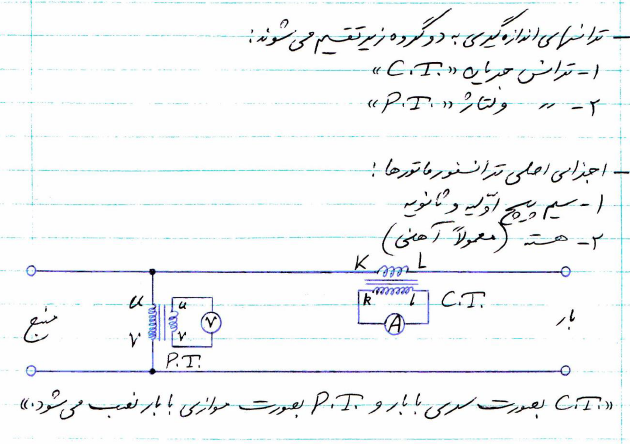 – ترانسهای اندازه‌گیری به دو گروه زیر تقسیم می‌شوند:
۱- ترانس جریان «C.T.»
۲- 〃 ولتاژ «P.T.»
– اجزای اصلی ترانسفورماتورها:
۱- سیم پیچ اوّلیه و ثانویه
۲- هسته (معمولاً آهنی)
K L
k l C.T.
A
U u
V v V
منبع
بار
P.T.
«C.T. بصورت سری با بار و P.T. بصورت موازی با بار نصب می‌شود.»